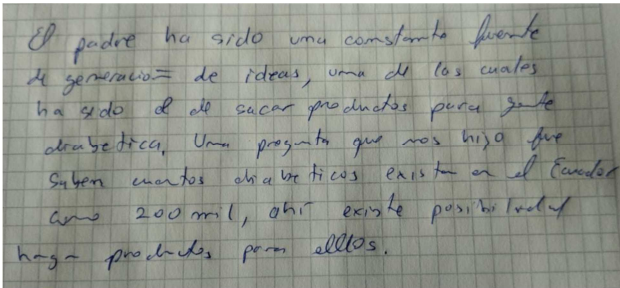 El padre ha sido una constante fuente
de generacion de ideas, una de las cuales
ha sido el de sacar productos para gente
diabetica. Una pregunta que nos hizo fue
Saben cuantos diabeticos existen en el Ecuador
como 200 mil, ahí existe posibilidad
haga productos para elllos.